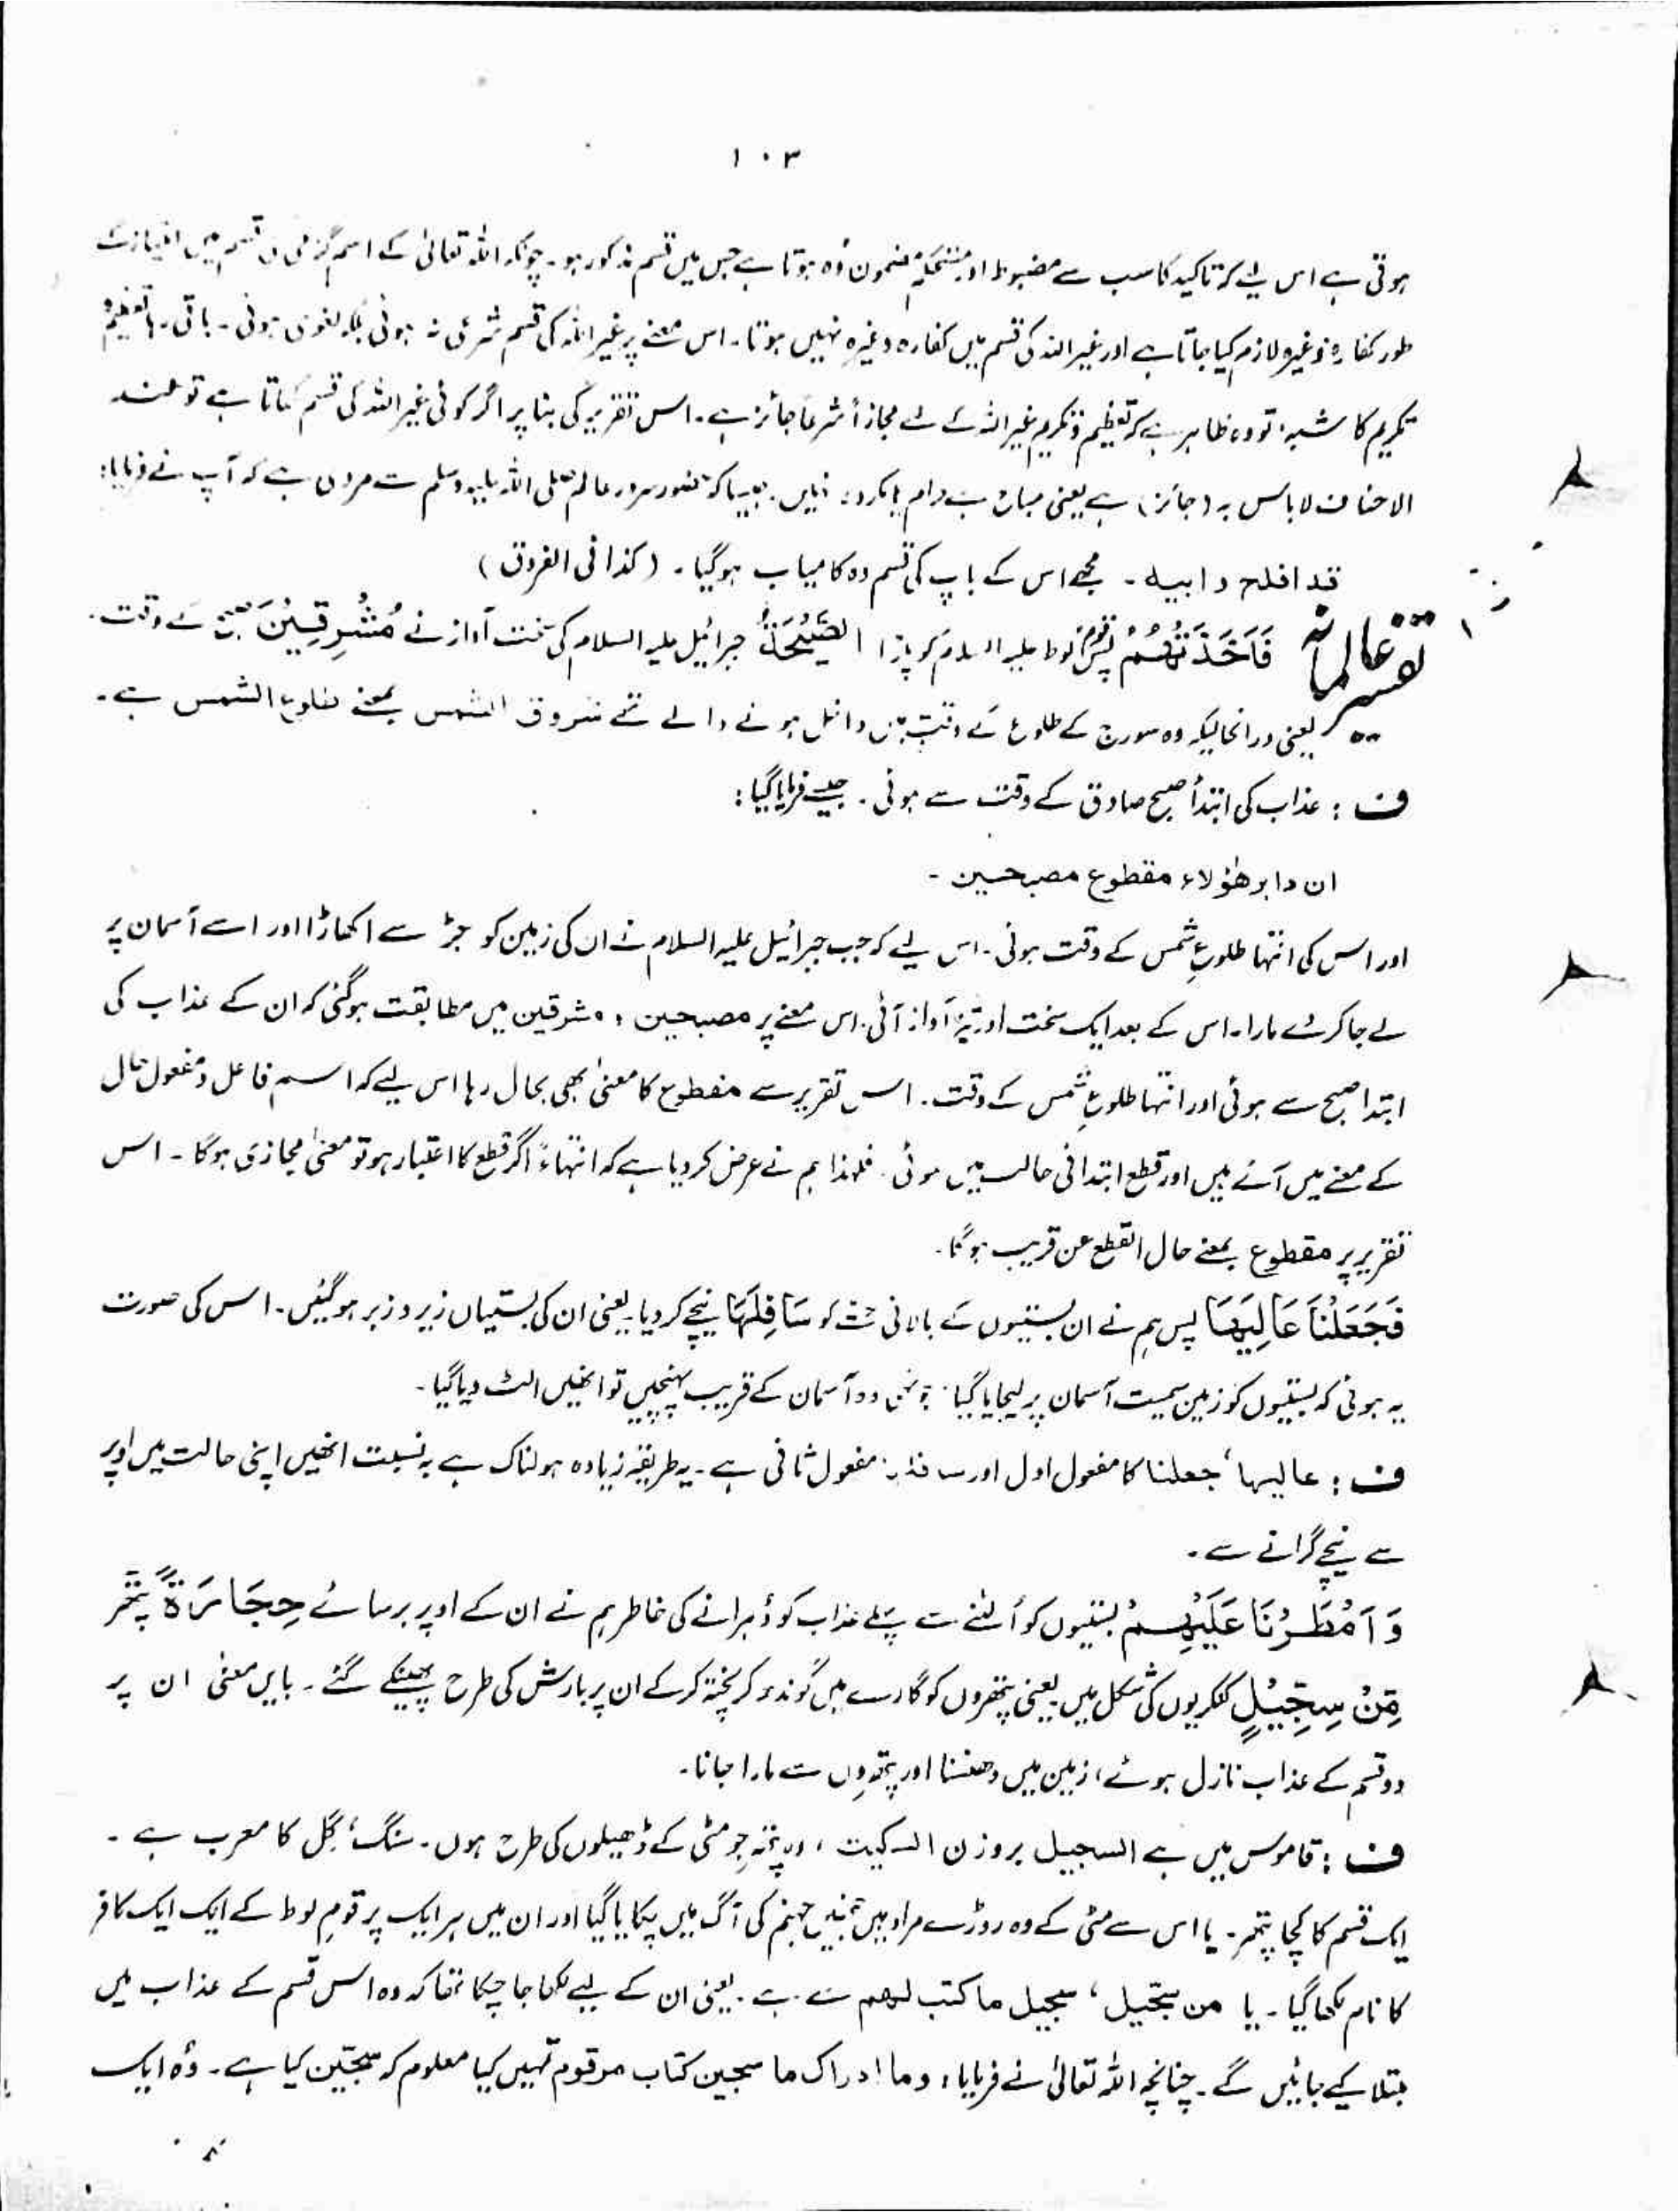 ١٠٣
ہوتی ہے اس لیے کہ تاکید کا سب سے مضبوط اور مستحکم مضمون وُہ ہوتا ہے جس میں قسم مذکور ہو۔ چونکہ اللہ تعالیٰ کے اسم گرامی کی قسم میں
طور کفارہ وغیرہ لازم کیا جاتا ہے اور غیر اللہ کی قسم میں کفارہ وغیرہ نہیں ہوتا۔ اس معنے پر غیر اللہ کی قسم شرعی نہ ہوئی بلکہ لغوی ہوئی۔ باقی رہا تعظیم و
تکریم کا شبہ، تو وہ ظاہر ہے کہ تعظیم و تکریم غیر اللہ کے لئے مجازاً شرعاً جائز ہے۔ اس تقریر کی بنا پر اگر کوئی غیر اللہ کی قسم کھاتا ہے تو عند
الاحناف لا باس بہ (جائز) ہے یعنی مباح ہے حرام یا مکروہ نہیں۔ جیسا کہ حضور سرور عالم صلی اللہ علیہ وسلم سے مروی ہے کہ آپ نے فرمایا:
قد افلح و ابیہ ۔ مجھے اس کے باپ کی قسم وہ کامیاب ہوگیا۔ (کذا فی الفروق)
تفسیر عالمانہ فَاَخَذَتْهُمُ پس قوم لوط علیہ السلام کو پکڑا الصَّیْحَةُ جبرائیل علیہ السلام کی سخت آواز نے مُشْرِقِیْنَ صبح کے وقت۔
یعنی درانحالیکہ وہ سورج کے طلوع کے وقت میں داخل ہونے والے تھے شروق الشمس بمعنے طلوع الشمس ہے۔
ف : عذاب کی ابتداً صبح صادق کے وقت سے ہوئی۔ جیسے فرمایا گیا:
ان دابر ھٰؤلاء مقطوع مصبحین ۔
اور اس کی انتہا طلوعِ شمس کے وقت ہوئی۔ اس لیے کہ جب جبرائیل علیہ السلام نے ان کی زمین کو جڑ سے اکھاڑا اور اسے آسمان پر
لے جا کر دے مارا۔ اس کے بعد ایک سخت اور تیز آواز آئی۔ اس معنے پر مصبحین و مشرقین میں مطابقت ہوگئی کہ ان کے عذاب کی
ابتدا صبح سے ہوئی اور انتہا طلوعِ شمس کے وقت۔ اس تقریر سے مقطوع کا معنیٰ بھی بحال رہا اس لیے کہ اسم فاعل و مفعول حال
کے معنے میں آتے ہیں اور قطع ابتدائی حالت میں ہوئی۔ فلہذا ہم نے عرض کر دیا ہے کہ انتہاءً اگر قطع کا اعتبار ہو تو معنیٰ مجازی ہوگا۔ اس
تقریر پر مقطوع بمعنے حال القطع عن قریب ہوگا۔
فَجَعَلْنَا عَالِیَهَا پس ہم نے ان بستیوں کے بالائی حصّے کو سَافِلَهَا نیچے کر دیا۔ یعنی ان کی بستیاں زیر و زبر ہوگئیں۔ اس کی صورت
یہ ہوئی کہ بستیوں کو زمین سمیت آسمان پر لیجایا گیا۔ جونہی وہ آسمان کے قریب پہنچیں تو انھیں الٹ دیا گیا۔
ف : عالیہا، جعلنا کا مفعول اول اور سافلہا مفعول ثانی ہے۔ یہ طریقہ زیادہ ہولناک ہے بہ نسبت انھیں اپنی حالت میں اوپر
سے نیچے گرانے سے۔
وَ اَمْطَرْنَا عَلَیْهِمْ بستیوں کو اُلٹنے سے پہلے عذاب کو دُہرانے کی خاطر ہم نے ان کے اوپر برسائے حِجَارَةً پتھر
مِّنْ سِجِّیْلٍ کنکریوں کی شکل میں یعنی پتھروں کو گارے میں گوندھ کر پختہ کر کے ان پر بارش کی طرح پھینکے گئے۔ بایں معنی ان پر
دو قسم کے عذاب نازل ہوئے، زمین میں دھنسنا اور پتھروں سے مارا جانا۔
ف : قاموس میں ہے السجیل بروزن السکیت، وہ پتھر جو مٹی کے ڈھیلوں کی طرح ہوں۔ سنگ، گِل کا معرب ہے ۔
ایک قسم کا کچا پتھر۔ یا اس سے مٹی کے وہ روڑے مراد ہیں جنہیں جہنم کی آگ میں پکایا گیا اور ان میں ہر ایک پر قومِ لوط کے ایک ایک کافر
کا نام لکھا گیا۔ یا من سجّیل، سجیل ما کتب لہم سے ہے۔ یعنی ان کے لیے لکھا جا چکا تھا کہ وہ اس قسم کے عذاب میں
مبتلا کیے جائیں گے۔ چنانچہ اللہ تعالیٰ نے فرمایا: و ما ادراک ما سجین کتاب مرقوم تمہیں کیا معلوم کہ سجّین کیا ہے۔ وُہ ایک